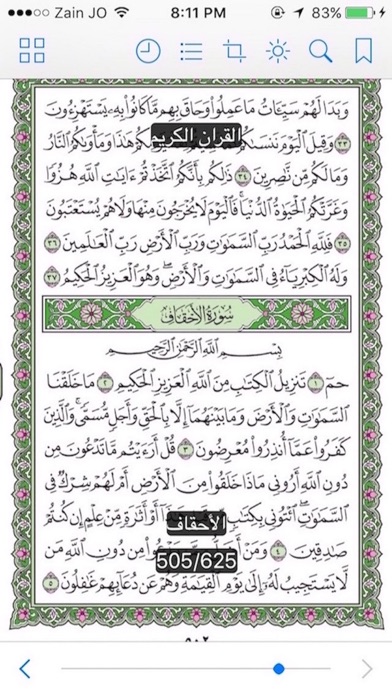 Zain JO 8:11 PM 83%
وَبَدَا لَهُمْ سَيِّـَٔاتُ مَا عَمِلُوا۟ وَحَاقَ بِهِم مَّا كَانُوا۟ بِهِۦ يَسْتَهْزِءُونَ
القران الكريم
٣٣ وَقِيلَ ٱلْيَوْمَ نَنسَىٰكُمْ هَٰذَا وَمَأْوَىٰكُمُ ٱلنَّارُ
وَمَا لَكُم مِّن نَّٰصِرِينَ ٣٤ ذَٰلِكُم بِأَنَّكُمُ ٱتَّخَذْتُمْ ءَايَٰتِ ٱللَّهِ هُزُوًا
وَغَرَّتْكُمُ ٱلْحَيَوٰةُ ٱلدُّنْيَا فَٱلْيَوْمَ لَا يُخْرَجُونَ مِنْهَا وَلَا هُمْ يُسْتَعْتَبُونَ
٣٥ فَلِلَّهِ ٱلْحَمْدُ رَبِّ ٱلسَّمَٰوَٰتِ وَرَبِّ ٱلْأَرْضِ رَبِّ ٱلْعَٰلَمِينَ ٣٦
وَلَهُ ٱلْكِبْرِيَآءُ فِى ٱلسَّمَٰوَٰتِ وَٱلْأَرْضِ وَهُوَ ٱلْعَزِيزُ ٱلْحَكِيمُ ٣٧
سُورَةُ الأَحْقَافِ
بِسْمِ ٱللَّهِ ٱلرَّحْمَٰنِ ٱلرَّحِيمِ
حمٓ ١ تَنزِيلُ ٱلْكِتَٰبِ مِنَ ٱللَّهِ ٱلْعَزِيزِ ٱلْحَكِيمِ ٢ مَا خَلَقْنَا
ٱلسَّمَٰوَٰتِ وَٱلْأَرْضَ وَمَا بَيْنَهُمَآ إِلَّا بِٱلْحَقِّ وَأَجَلٍ مُّسَمًّى وَٱلَّذِينَ
كَفَرُوا۟ عَمَّآ أُنذِرُوا۟ مُعْرِضُونَ ٣ قُلْ أَرَءَيْتُم مَّا تَدْعُونَ مِن
دُونِ ٱللَّهِ أَرُونِى مَاذَا خَلَقُوا۟ مِنَ ٱلْأَرْضِ أَمْ لَهُمْ شِرْكٌ فِى
ٱلسَّمَٰوَٰتِ ٱئْتُونِى بِكِتَٰبٍ أَوْ أَثَٰرَةٍ مِّنْ عِلْمٍ إِن كُنتُمْ
الأحقاف
صَٰدِقِينَ ٤ وَمَنْ مِن دُونِ ٱللَّهِ مَن
505/625
لَّا يَسْتَجِيبُ لَهُۥٓ إِلَىٰ يَوْمِ ٱلْقِيَٰمَةِ وَهُمْ عَن دُعَآئِهِمْ غَٰفِلُونَ ٥
٥٠٢